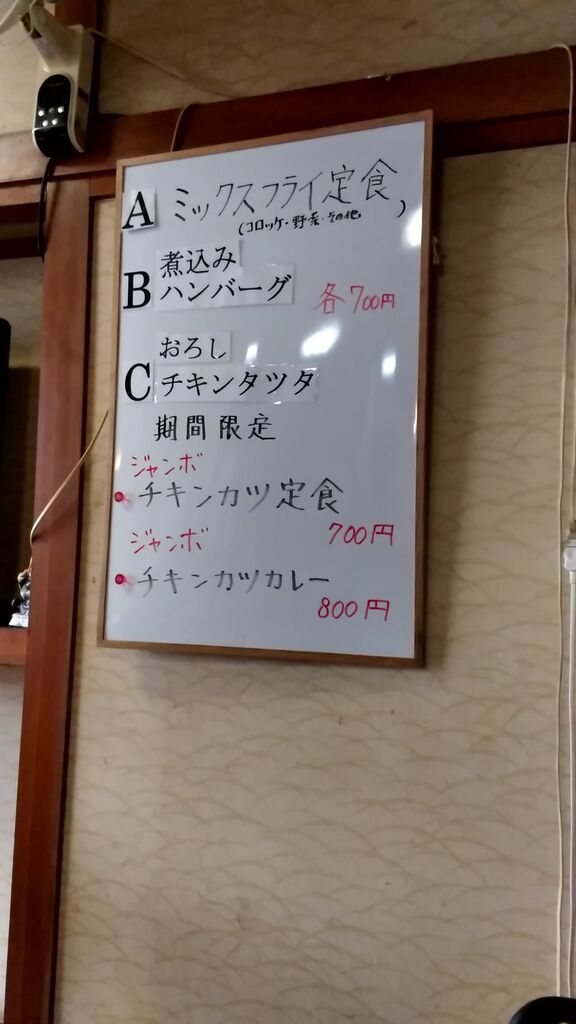 A ミックスフライ定食
(コロッケ・野菜・その他)
煮込み
B ハンバーグ 各700円
おろし
C チキンタツタ
期間限定
ジャンボ
チキンカツ定食
700円
ジャンボ
チキンカツカレー
800円